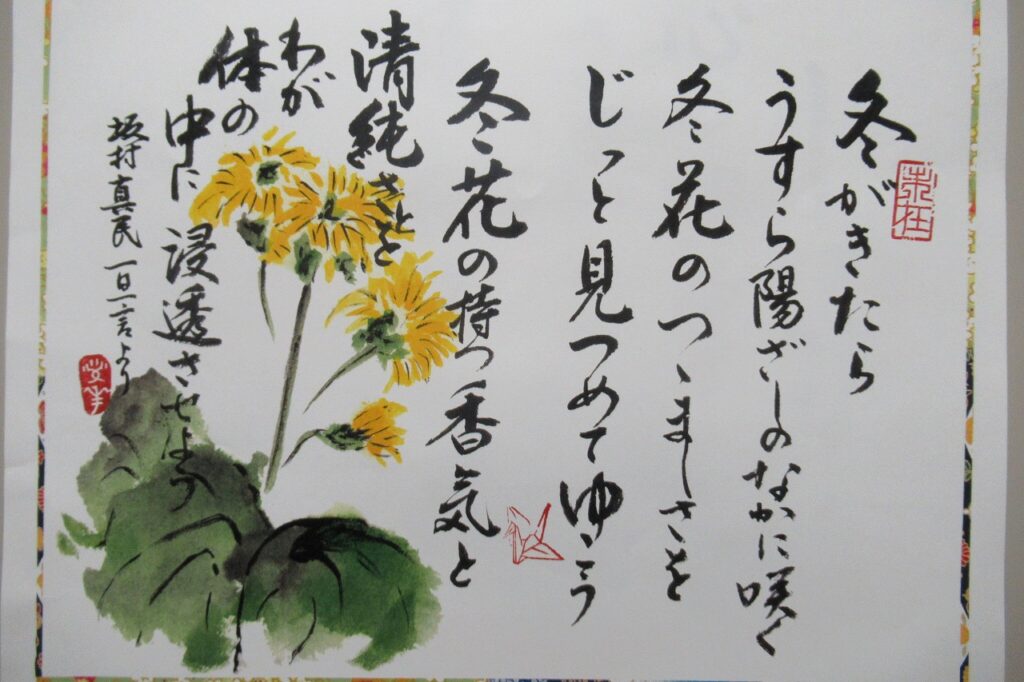 冬がきたら
うすら陽ざしのなかに咲く
冬花のつゝましさを
じっと見つめてゆこう
冬花の持つ香気と
清純さとを
わが
体の
中に浸透させよう
坂村真民 一日一言より